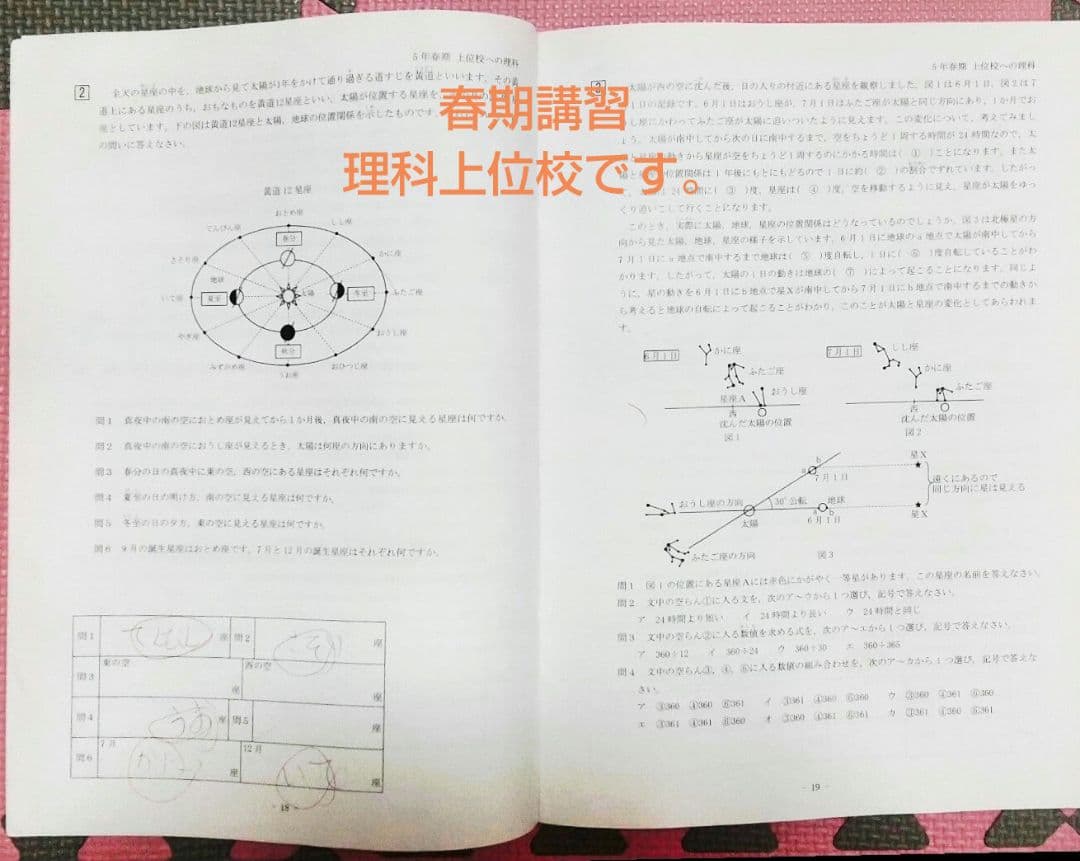 春期講習
理科上位校です。
5年春期 上位校への理科
2
全天の星座の中を、地球から見て太陽が1年をかけて通り過ぎる道すじを黄道といいます。その黄
道上にある星座のうち、おもなものを黄道12星座といい、太陽が位置する星座を
座としています。下の図は黄道12星座と太陽、地球の位置関係を示したものです。
の問いに答えなさい。
黄道12星座
おとめ座
てんびん座
しし座
春分
さそり座
かに座
地球
いて座
夏至
太陽
冬至
ふたご座
やぎ座
おうし座
秋分
みずがめ座
うお座
おひつじ座
問1 真夜中の南の空におとめ座が見えてから1か月後、真夜中の南の空に見える星座は何ですか。
問2 真夜中の南の空におうし座が見えるとき、太陽は何座の方向にありますか。
問3 春分の日の真夜中に東の空、西の空にある星座はそれぞれ何ですか。
問4 夏至の日の明け方、南の空に見える星座は何ですか。
問5 冬至の日の夕方、東の空に見える星座は何ですか。
問6 9月の誕生星座はおとめ座です。7月と12月の誕生星座はそれぞれ何ですか。
問1 てんびん 座 問2 さそり 座
問3 東の空 座 西の空 座
問4 うお 座 問5 座
問6 7月 かに 座 12月 いて 座
- 18 -
5年春期 上位校への理科
3
太陽が西の空に沈んだ後、日の入りの付近にある星座を観察しました。図1は6月1日、図2は7
1日の記録です。6月1日はおうし座が、7月1日はふたご座が太陽と同じ方向にあり、1か月でお
うし座にかわってふたご座が太陽に追いついたように見えます。この変化について、考えてみまし
ょう。太陽が南中してから次の日に南中するまで、空をちょうど1周する時間が24時間なので、太
動きから星座が空をちょうど1周するのにかかる時間は( ① )ことになります。また太
位置関係は1年後にもとにもどるので1日に約( ② )の割合でずれています。したがっ
24 ( ③ )度、星座は( ④ )度、空を移動するように見え、星座が太陽をゆっ
くり追いこして行くことになります。
このとき、実際に太陽、地球、星座の位置関係はどうなっているのでしょうか。図3は北極星の方
向から見た太陽、地球、星座の様子を示しています。6月1日に地球のa地点で太陽が南中してから
7月1日にa地点で南中するまで地球は( ⑤ )度自転し、1日に( ⑥ )度自転していることがわ
かります。したがって、太陽の1日の動きは地球の( ⑦ )によって起こることになります。同じよ
うに、星の動きを6月1日にb地点で星Xが南中してから7月1日にb地点で南中するまでの動きか
ら考えると地球の自転によって起こることがわかり、このことが太陽と星座の変化としてあらわれま
す。
6月1日
かに座
ふたご座
星座A
おうし座
西
沈んだ太陽の位置
図1
7月1日
しし座
かに座
ふたご座
西
沈んだ太陽の位置
図2
b
a
7月1日
星X
遠くにあるので
同じ方向に星は見える
おうし座の方向
30°公転
地球
太陽
a b
6月1日
星X
ふたご座の方向
図3
問1 図1の位置にある星座Aには赤色にかがやく一等星があります。この星座の名前を答えなさい。
問2 文中の空らん①に入る文を、次のア~ウから1つ選び、記号で答えなさい。
ア 24時間より短い イ 24時間より長い ウ 24時間と同じ
問3 文中の空らん②に入る数値を求める式を、次のア~エから1つ選び、記号で答えなさい。
ア 360÷12 イ 360÷24 ウ 360÷30 エ 360÷365
問4 文中の空らん③、④、⑥に入る数値の組み合わせを、次のア~カから1つ選び、記号で答えな
さい。
ア ③360 ④360 ⑥361 イ ③361 ④360 ⑥360 ウ ③360 ④361 ⑥360
エ ③361 ④361 ⑥360 オ ③360 ④361 ⑥361 カ ③361 ④360 ⑥361
- 19 -